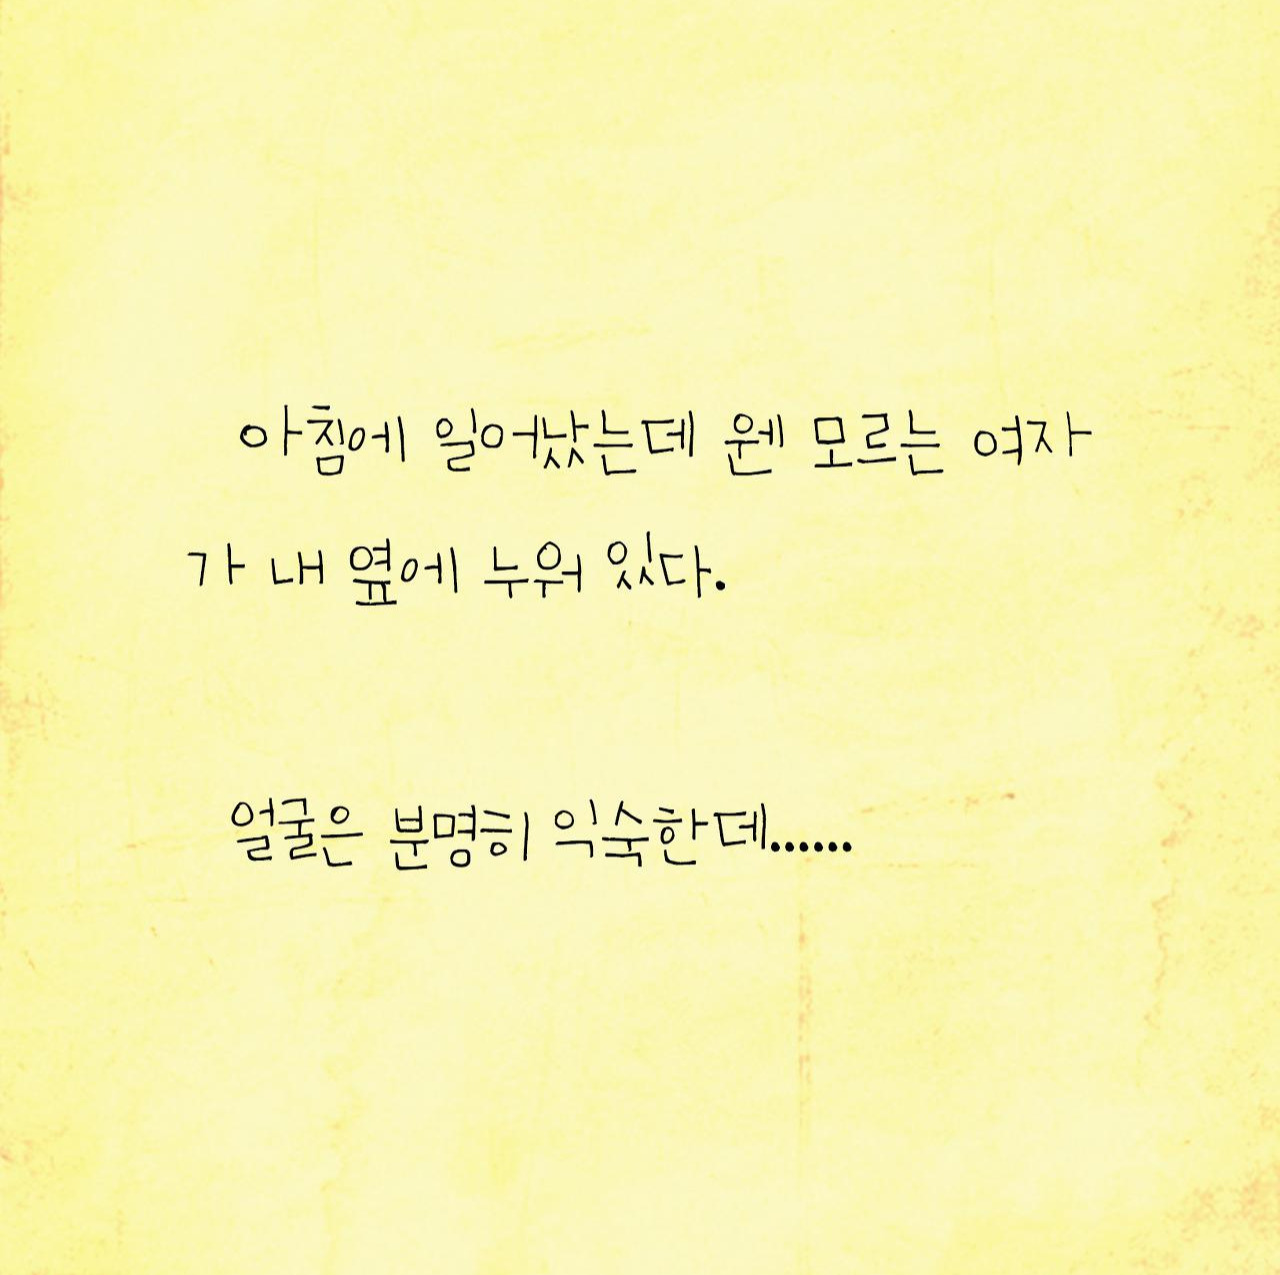 아침에 일어났는데 웬 모르는 여자
가 내 옆에 누워 있다.
얼굴은 분명히 익숙한데......